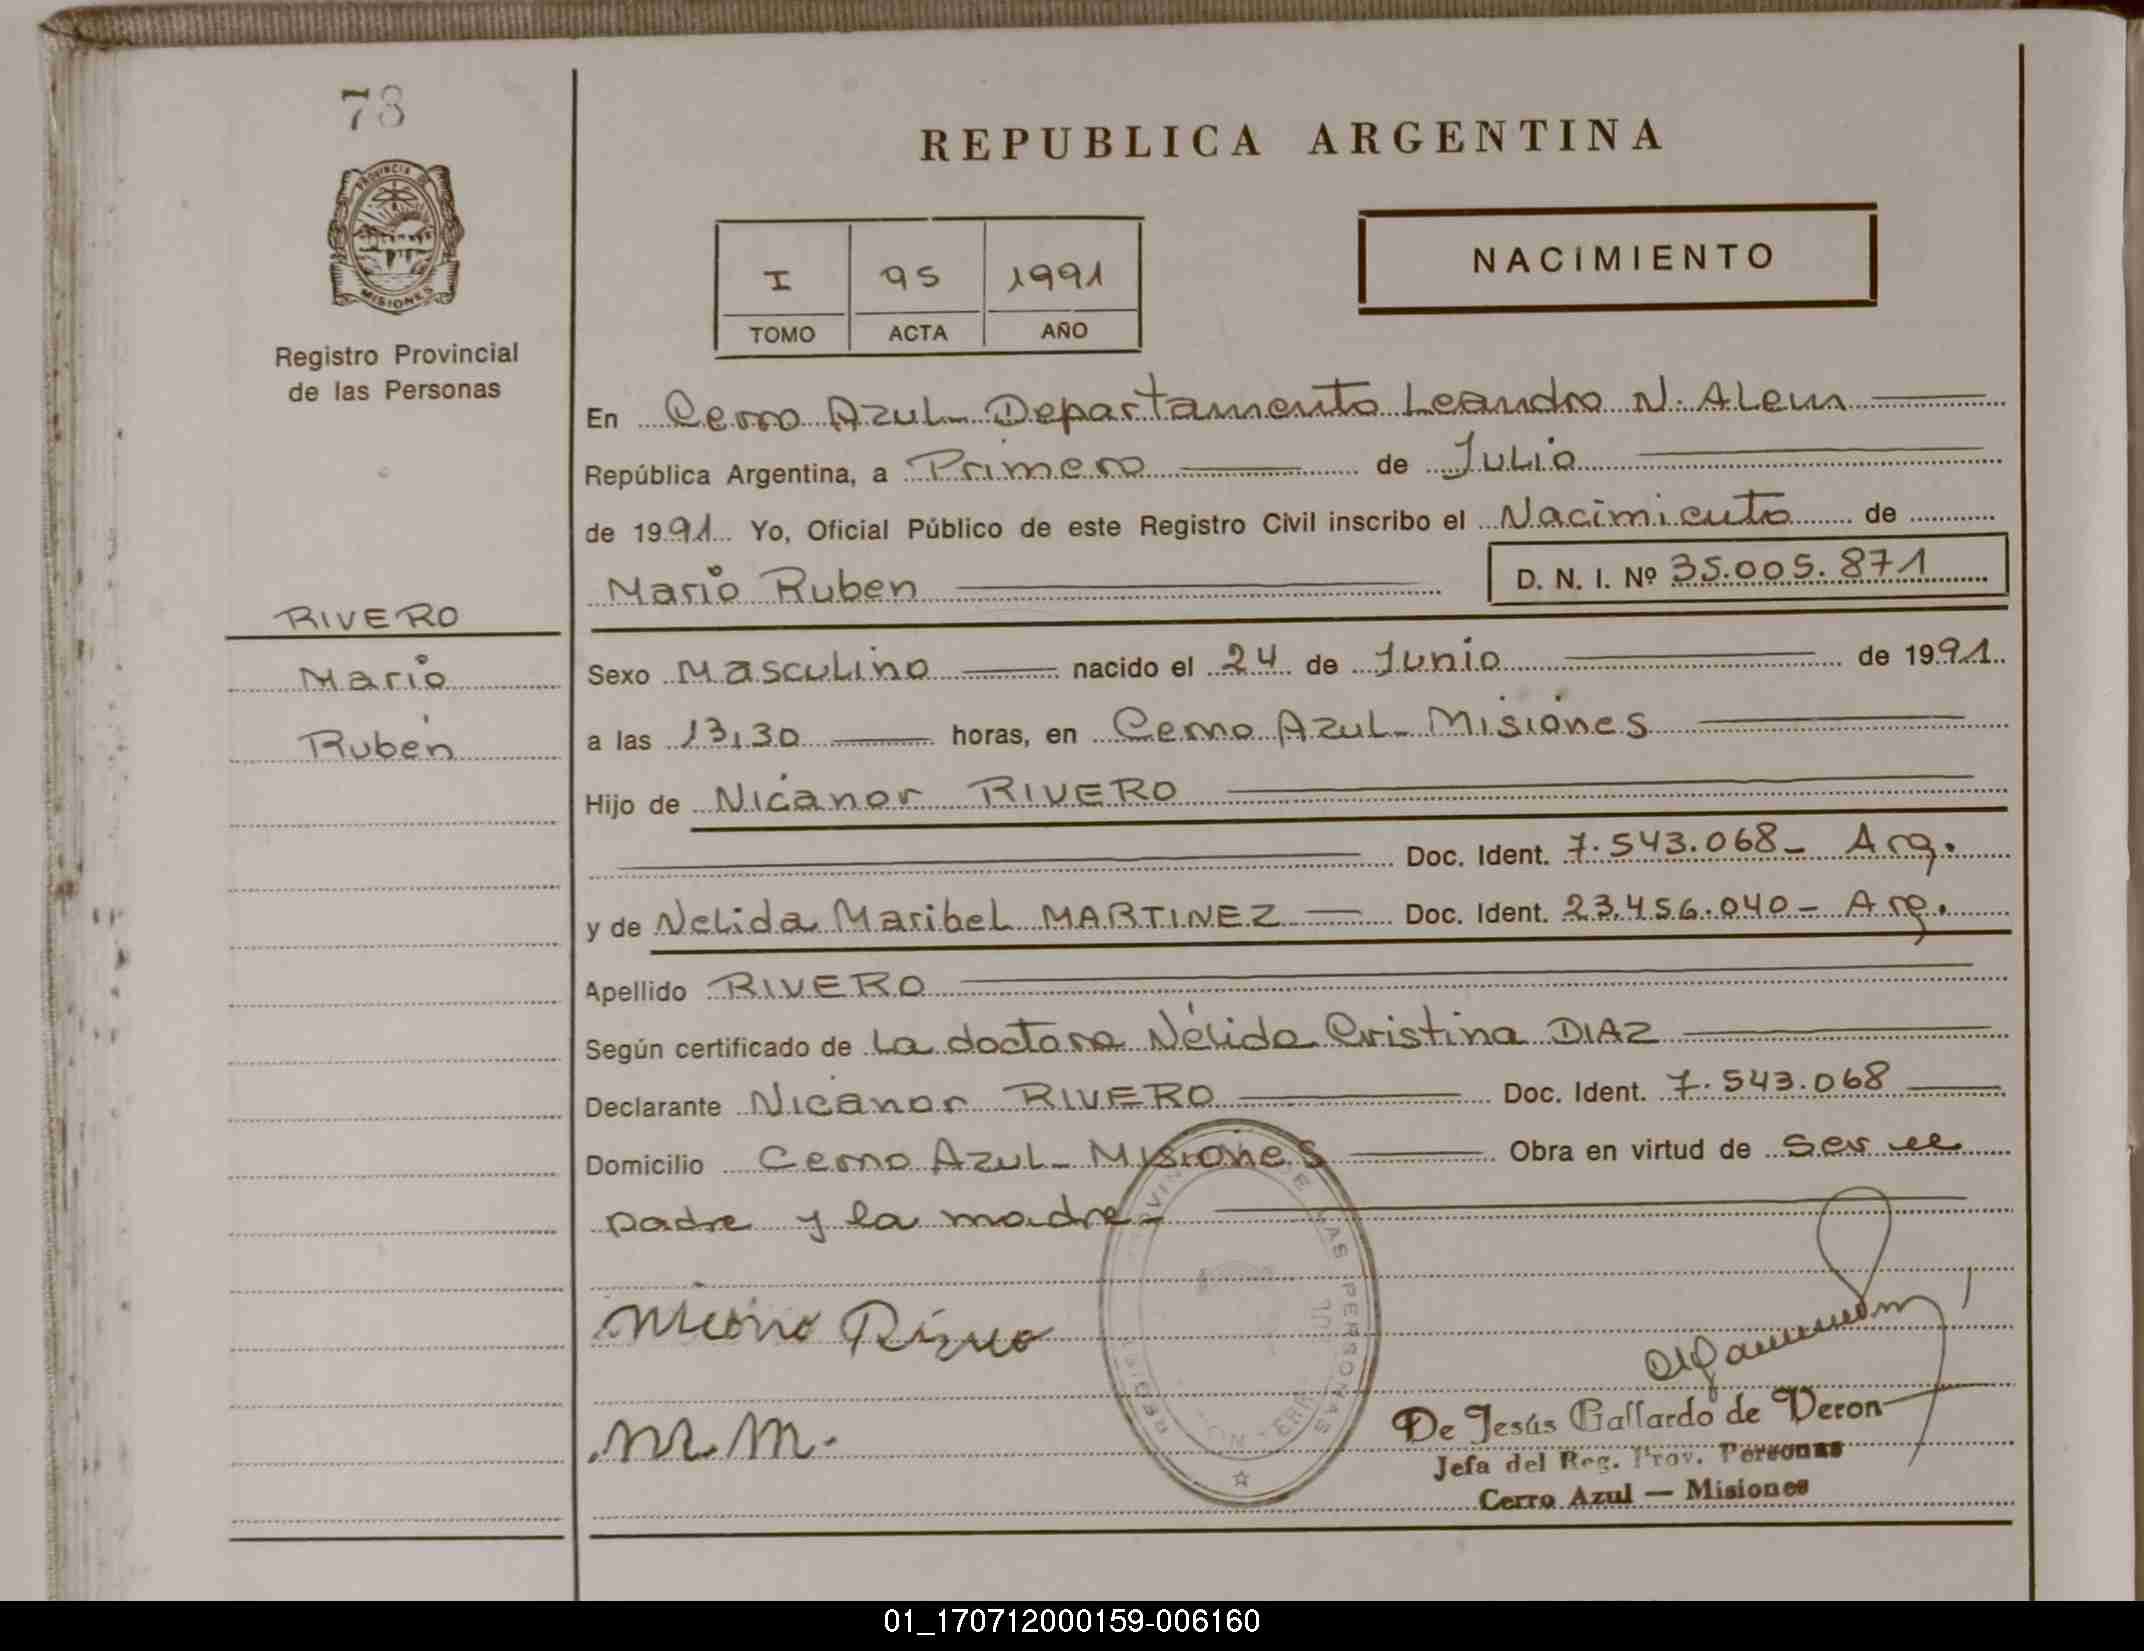 73
PROVINCIA DE
MISIONES
Registro Provincial
de las Personas
RIVERO
Mario
Ruben
REPUBLICA ARGENTINA
I 95 1991
TOMO ACTA AÑO
NACIMIENTO
En Cerro Azul - Departamento Leandro N. Alem
República Argentina, a Primero de Julio
de 1991 Yo, Oficial Público de este Registro Civil inscribo el Nacimiento de
Mario Ruben D. N. I. Nº 35.005.871
Sexo Masculino nacido el 24 de Junio de 1991
a las 13,30 horas, en Cerro Azul - Misiones
Hijo de Nicanor RIVERO
Doc. Ident. 7.543.068 - Arg.
y de Nelida Maribel MARTINEZ Doc. Ident. 23.456.040 - Arg.
Apellido RIVERO
Según certificado de La doctora Nélida Cristina DIAZ
Declarante Nicanor RIVERO Doc. Ident. 7.543.068
Domicilio Cerro Azul - Misiones Obra en virtud de ser el
padre y la madre -
M.M.
De Jesús Gallardo de Veron
Jefa del Reg. Prov. Personas
Cerro Azul — Misiones
01_170712000159-006160